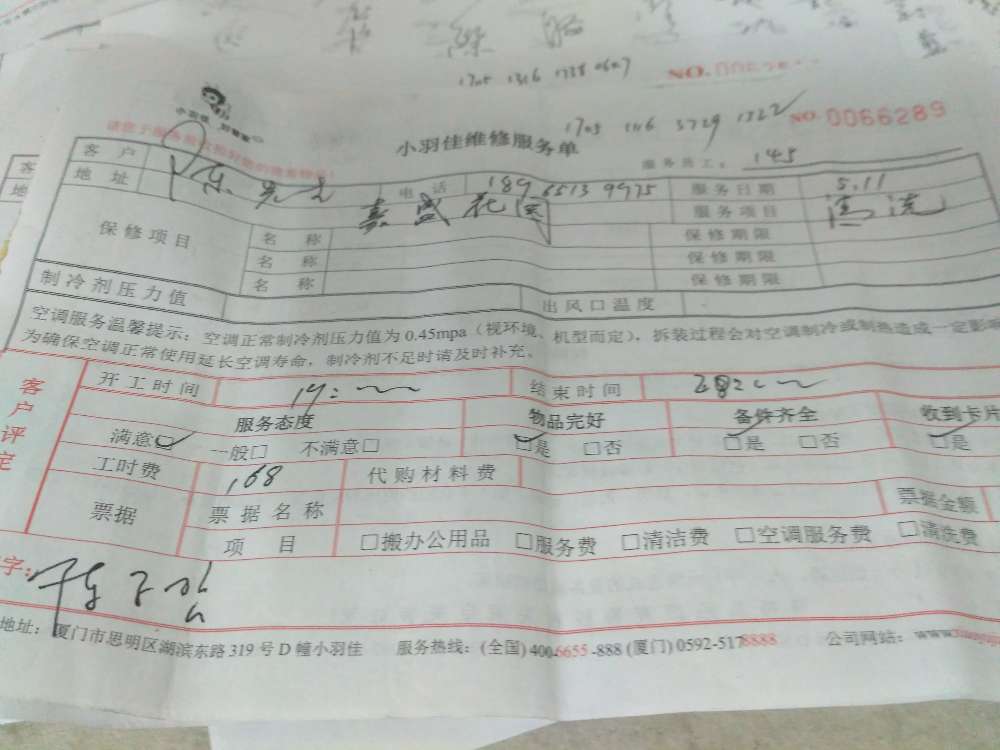 1705 1316 1738 0607
NO.
1703 1116 3729 1322
小羽佳 好管家
请您于服务前收拾好您的贵重物品!
小羽佳维修服务单
NO. 0066289
服务员工: 145
客户 陈先生 电话 189 6513 9975 服务日期 5.11
地址 嘉盛花园 服务项目 清洗
保修项目 名称 保修期限
名称 保修期限
名称 保修期限
制冷剂压力值 出风口温度
空调服务温馨提示: 空调正常制冷剂压力值为0.45mpa(视环境、机型而定),拆装过程会对空调制冷或制热造成一定影响
为确保空调正常使用延长空调寿命,制冷剂不足时请及时补充。
客户评定
开工时间 结束时间
服务态度 物品完好 备件齐全 收到卡片
满意□ 一般□ 不满意□ □是 □否 □是 □否 □是
工时费 168 代购材料费
票据 票据名称 票据金额
项目 □搬办公用品 □服务费 □清洁费 □空调服务费 □清洗费
字:
地址: 厦门市思明区湖滨东路319号D幢小羽佳 服务热线: (全国) 400-6655-888 (厦门) 0592-5178888 公司网站: www.